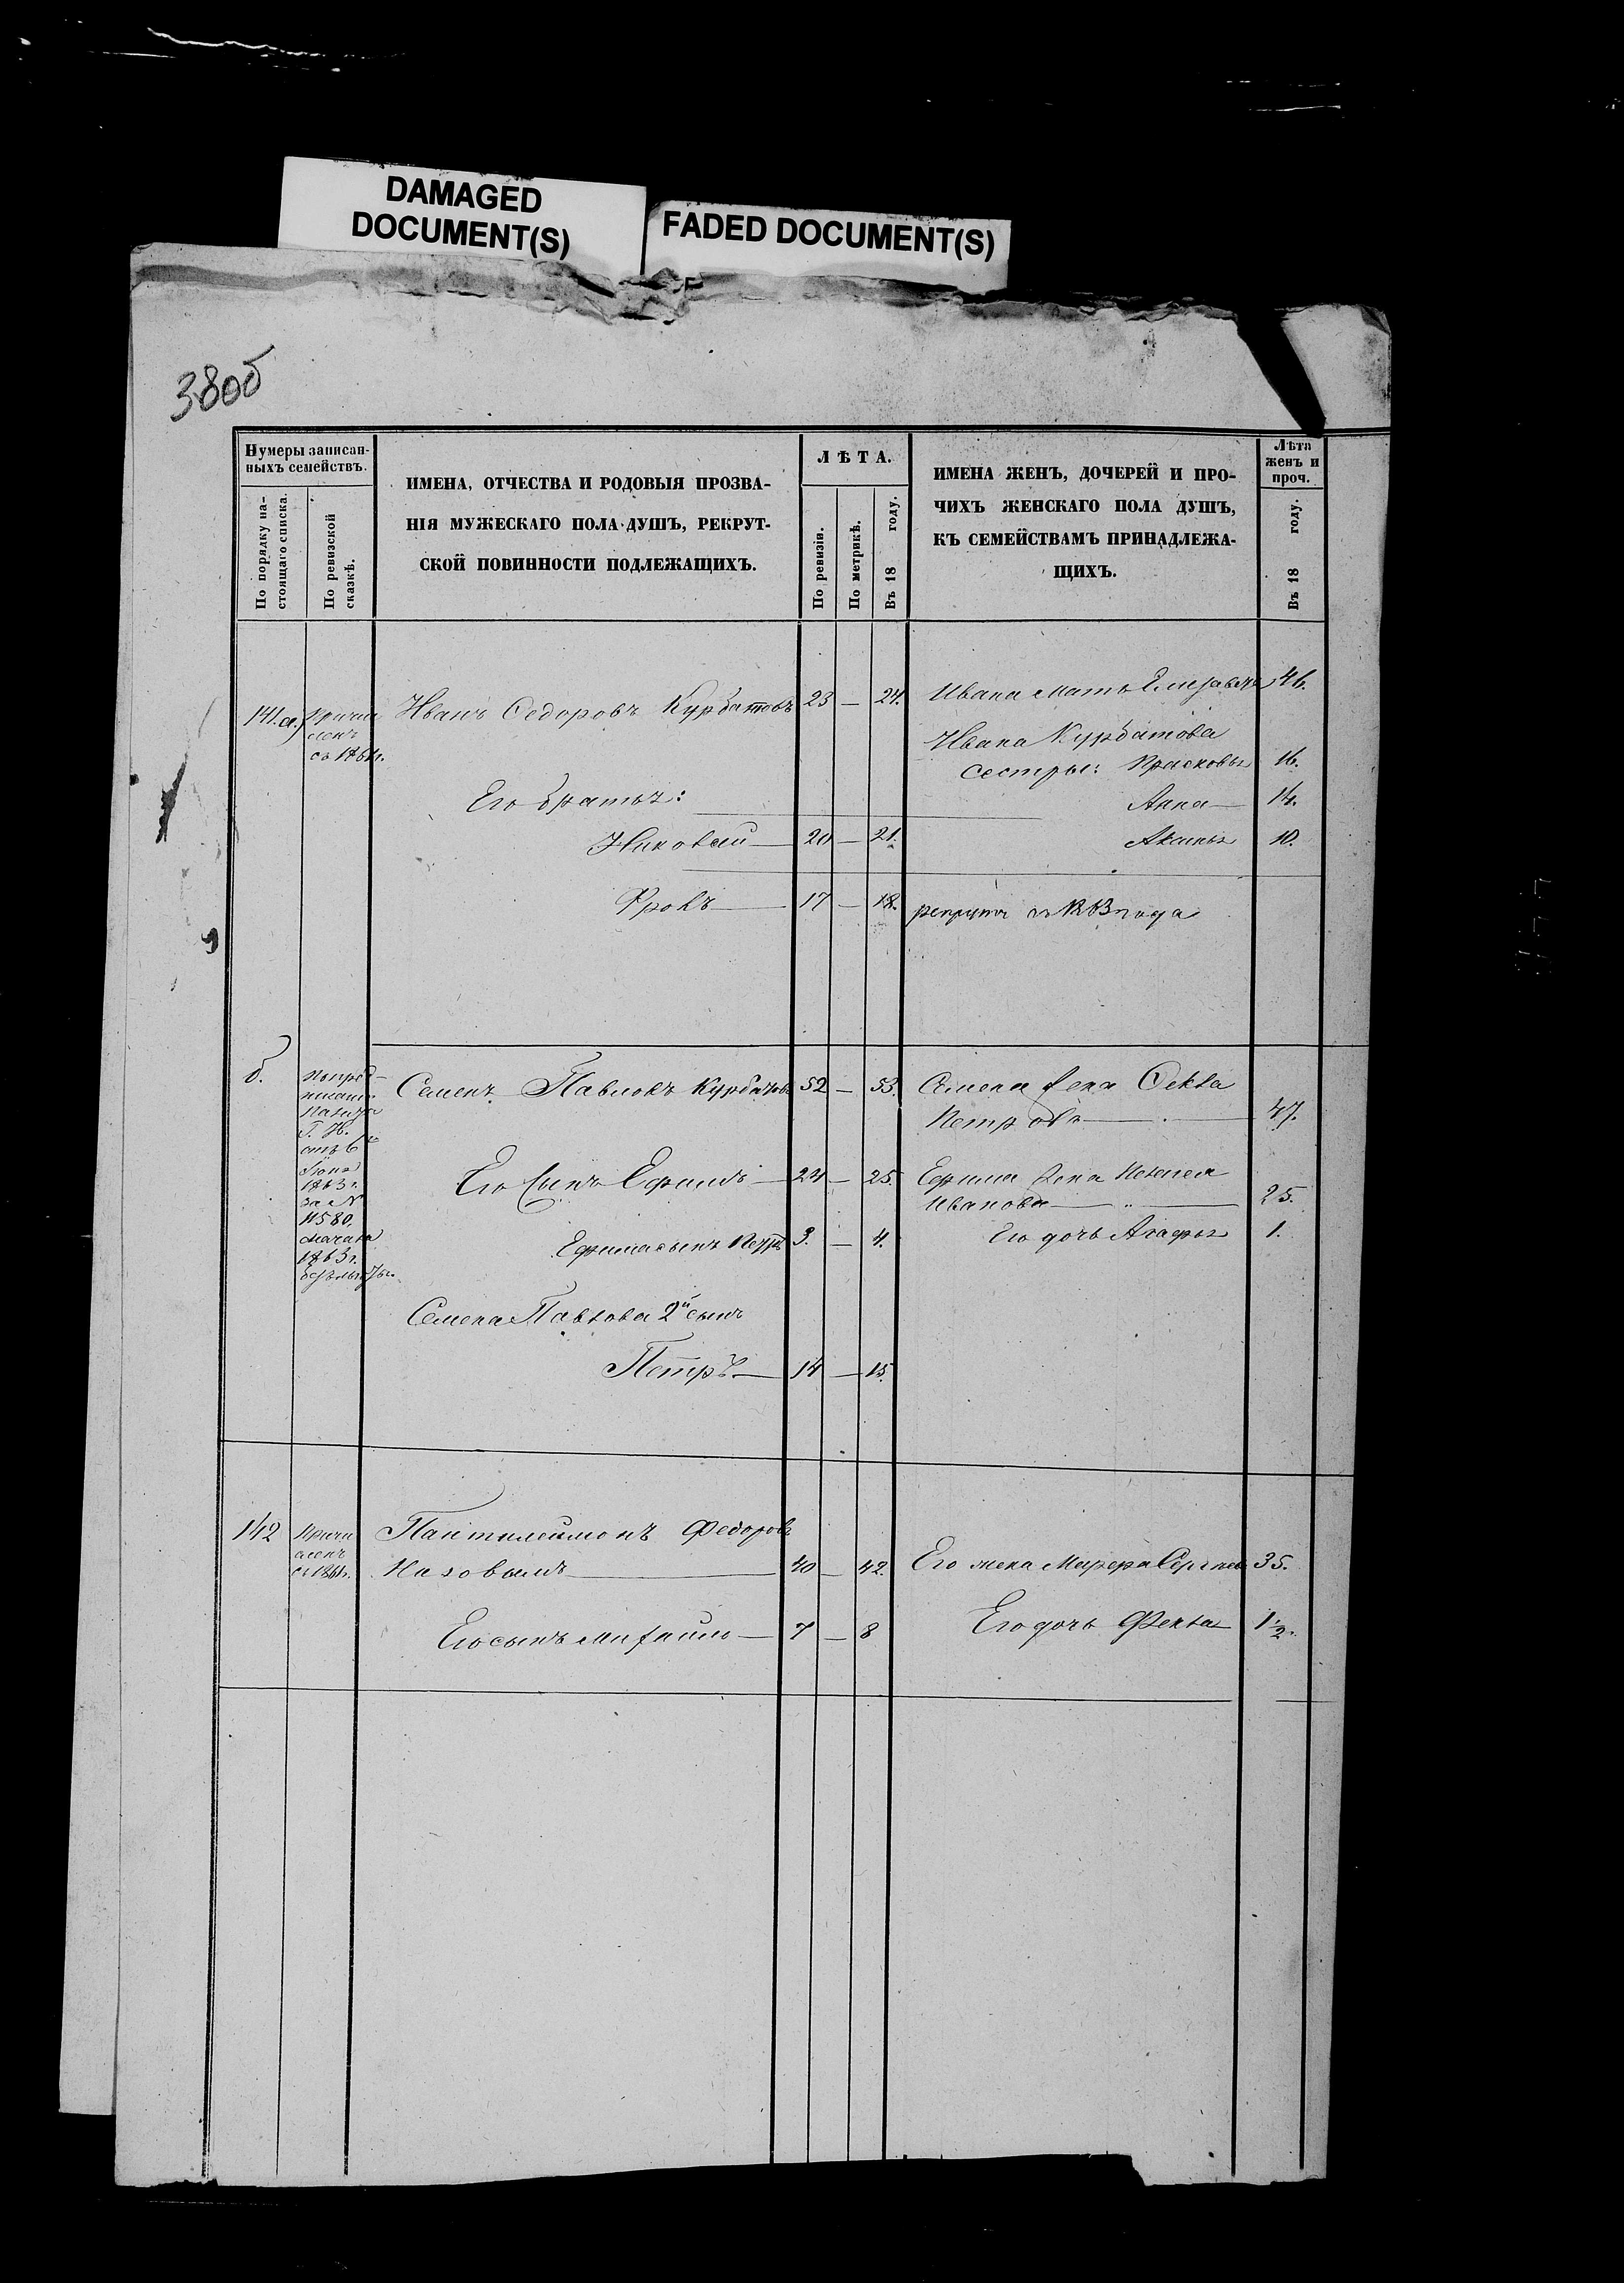 DAMAGED
DOCUMENT(S)
FADED DOCUMENT(S)
38об
Нумеры записан-
ныхъ семействъ.
По порядку на-
стоящаго списка.
По ревизской
сказкѣ.
ИМЕНА, ОТЧЕСТВА И РОДОВЫЯ ПРОЗВА-
НІЯ МУЖЕСКАГО ПОЛА ДУШЪ, РЕКРУТ-
СКОЙ ПОВИННОСТИ ПОДЛЕЖАЩИХЪ.
ЛѢТА.
По ревизіи.
По метрикѣ.
Въ 18 году.
ИМЕНА ЖЕНЪ, ДОЧЕРЕЙ И ПРО-
ЧИХЪ ЖЕНСКАГО ПОЛА ДУШЪ,
КЪ СЕМЕЙСТВАМЪ ПРИНАДЛЕЖА-
ЩИХЪ.
Лѣта
женъ и
проч.
Въ 18 году.
141.а.) Причи Иванъ Федоровъ Курбатовъ 23 — 24. Ивана мать Елизавета 46.
сленъ
съ 1861г.
Ивана Курбатова
сестры: Прасковья 16.
Его братья: Анна 14.
Николай 20 — 21. 10.
Фролъ 17 — 18. рекрутъ 1863 года
б. Семенъ Павловъ Курбатовъ 52 — 53. Семена жена Фекла
Петрова 47.
Г. Н.
Іюня
1863 г.
за №
11580.
1863 г.
Его сынъ Ефимъ 24 — 25. Ефима жена
Иванова 25.
Ефима сынъ Петръ 3. — 4. Его дочь Агафья 1.
Семена Павлова 2й сынъ
Петръ 14 — 15.
142 Причи Пантилеимонъ Федоровъ
сленъ
съ 1861г. 40 — 42. Его жена Сергѣева 35.
Его сынъ Михаило 7 — 8 Его дочь Фекла 1½.